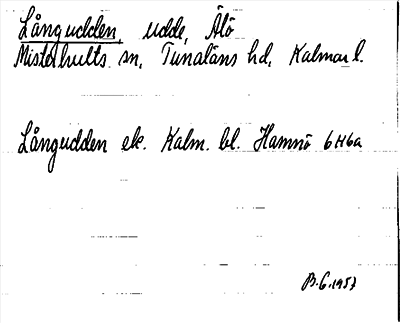 Långudden, udde, Älö
Misterhults sn, Tunaläns hd, Kalmar l.
Långudden ek. Kalm. bl. Hamnö 6H6a
B.G. 1957